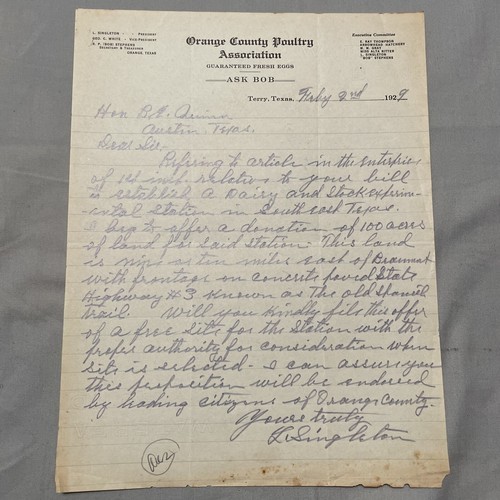 L. SINGLETON - - PRESIDENT
GEO. C. WHITE, VICE-PRESIDENT
G. P. (BOB) STEPHENS
SECRETARY & TREASURER
ORANGE, TEXAS
Orange County Poultry
Association
GUARANTEED FRESH EGGS
ASK BOB
Executive Committee
E. RAY THOMPSON
ARROWHEAD HATCHERY
L. SINGLETON
"BOB" STEPHENS
Terry, Texas, Feby 2nd 1929
Hon B.E. Quinn
Austin, Texas.
Dear Sir.
Refering to article in the Enterprise
of 1st inst relative to your bill
to establish a Dairy and Stock experim-
-ental Station in South east Texas.
I beg to offer a donation of 100 acres
of land for said station. This land
is nine or ten miles east of Beaumont
with frontage on concrete paved State
Highway #3 known as The old Spanish
trail. Will you kindly file this offer
of a free site for the Station with the
proper authority for consideration when
site is selected - I can assure you
this proposition will be endorsed
by leading citizens of Orange County.
Yours truly
L Singleton